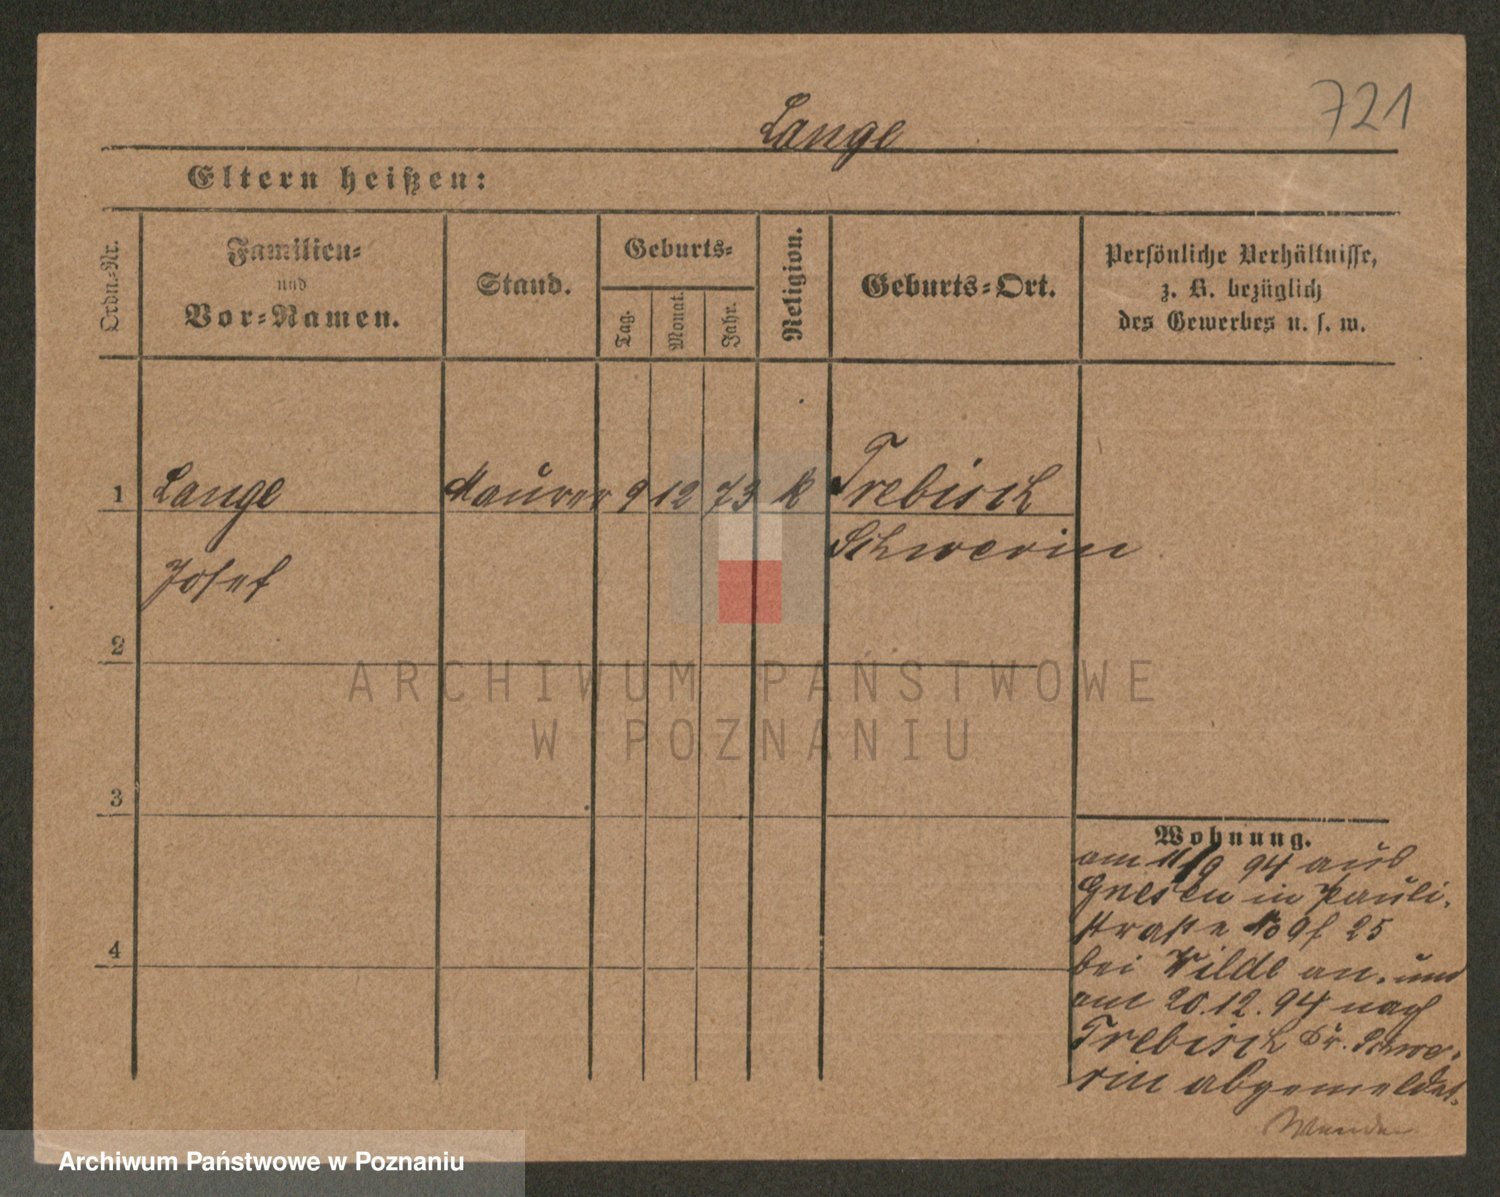 721
Lange
Eltern heißen:
Ordn.-Nr.
Familien-
und
Vor-Namen.
Stand.
Geburts-
Tag.
Monat.
Jahr.
Religion.
Geburts-Ort.
Persönliche Verhältnisse,
z. B. bezüglich
des Gewerbes u. s. w.
1 Lange Maurer 9 12 73 k Trebisch
Schwerin
Josef
2
3
4
Wohnung.
am 11/9 94 aus
Gnesen in Pauli-
straße No 9 25
bei Wilde an. und
am 20.12.94 nach
Trebisch Kr. Schwe-
rin abgemeldet.
ARCHIWUM PAŃSTWOWE
W POZNANIU
Archiwum Państwowe w Poznaniu